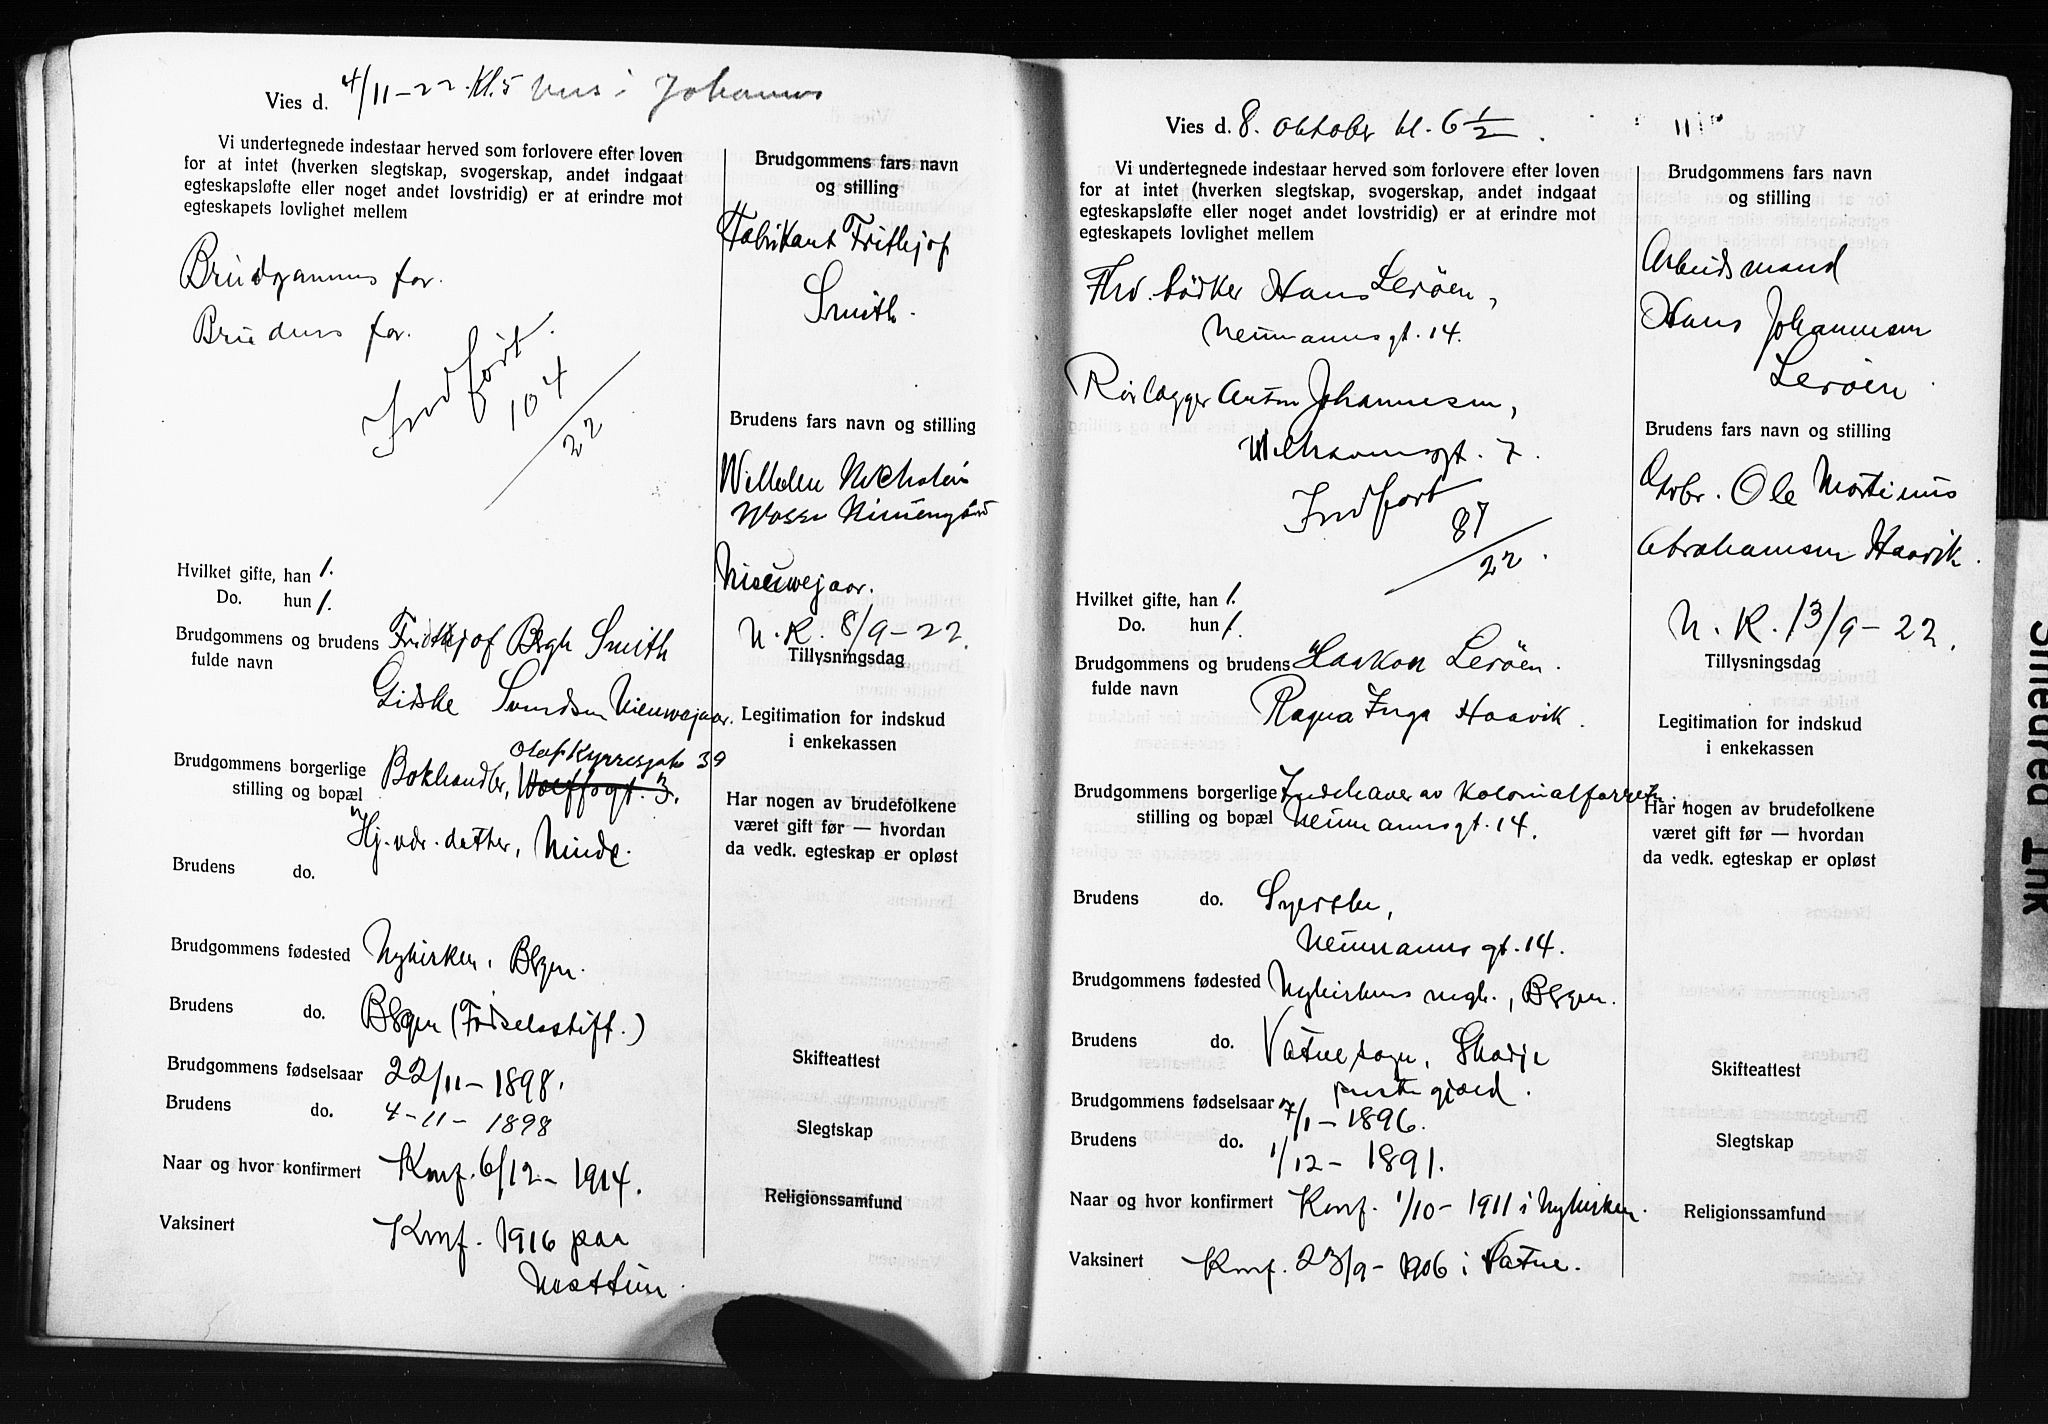 Vies d. 4/11-22. Kl. 5 hus i Johannes
Vi undertegnede indestaar herved som forlovere efter loven
for at intet (hverken slegtskap, svogerskap, andet indgaat
egteskapsløfte eller noget andet lovstridig) er at erindre mot
egteskapets lovlighet mellem
Brudgommens far.
Brudens far.
Indført.
104
22
Hvilket gifte, han 1.
Do. hun 1.
Brudgommens og brudens Fridthjof Bergh Smith
fulde navn
Gidske Svendsen Nieuwejaar.
Olaf Kyrresgate 39
Brudgommens borgerlige Bokhandler, Wolffsgt. 3.
stilling og bopæl
Hj. v. datter, Minde.
Brudens do.
Brudgommens fødested Nykirken, Bergen.
Brudens do. Bergen (Fødselsstift.)
Brudgommens fødselsaar 22/11-1898.
Brudens do. 4-11-1898
Naar og hvor konfirmert Konf. 6/12-1914.
Vaksinert Konf. 1916 paa
Nesttun.
Brudgommens fars navn
og stilling
Fabrikant Frithjof
Smith.
Brudens fars navn og stilling
Wilhelm
Nieuwejaar.
N. K. 8/9-22.
Tillysningsdag
Legitimation for indskud
i enkekassen
Har nogen av brudefolkene
været gift før — hvordan
da vedk. egteskap er opløst
Skifteattest
Slegtskap
Religionssamfund
Vies d. 8. oktober kl. 6 1/2.
Vi undertegnede indestaar herved som forlovere efter loven
for at intet (hverken slegtskap, svogerskap, andet indgaat
egteskapsløfte eller noget andet lovstridig) er at erindre mot
egteskapets lovlighet mellem
Fhv. bødker Hans Lerøen,
Neumannsgt. 14.
Rørlægger Anton Johannesen,
Welhavensgt. 7.
Indført
87
22.
Hvilket gifte, han 1.
Do. hun 1.
Brudgommens og brudens Haakon Lerøen.
fulde navn
Ragna Inga Haavik.
Brudgommens borgerlige Indehaver av Kolonialforretn.,
stilling og bopæl Neumannsgt. 14.
Brudens do. Syerske,
Neumanns gt. 14.
Brudgommens fødested Nykirkens mgh., Bergen.
Brudens do. Vatne sogn, Skodje
prestegjæld.
Brudgommens fødselsaar 7/1-1896.
Brudens do. 1/12-1891.
Naar og hvor konfirmert Konf. 1/10-1911 i Nykirken.
Vaksinert Konf. 23/9-1906 i Vatne.
Brudgommens fars navn
og stilling
Arbeidsmand
Hans Johannesen
Lerøen.
Brudens fars navn og stilling
Gbr. Ole Martinus
Abrahamsen Haavik.
N. K. 13/9-22.
Tillysningsdag
Legitimation for indskud
i enkekassen
Har nogen av brudefolkene
været gift før — hvordan
da vedk. egteskap er opløst
Skifteattest
Slegtskap
Religionssamfund
Smeared Ink